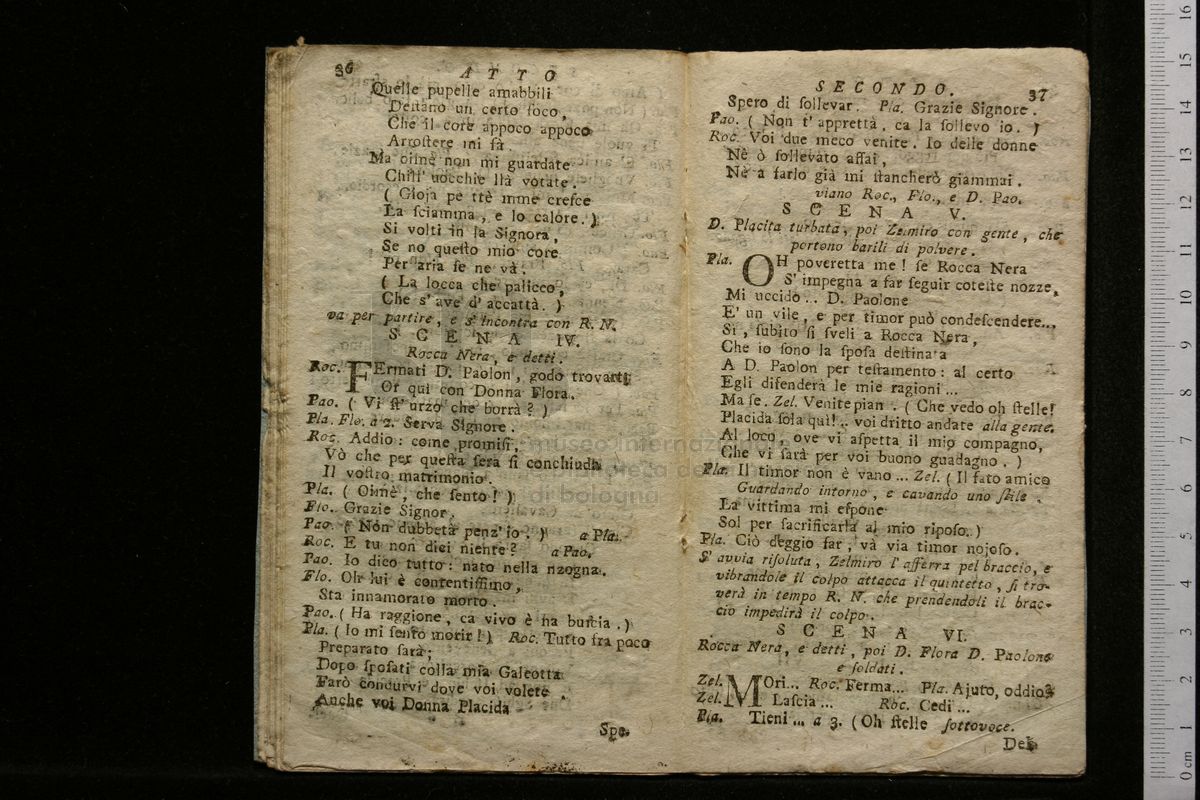 36 ATTO
Quelle pupelle amabbili
Deſtano un certo foco,
Che il core appoco appoco
Arroſtere mi fà.
Ma oimè non mi guardate
Chill' uocchie llà votate.
( Gioja pe ttè mme creſce
La ſciamma, e lo calore. )
Si volti in la Signora,
Se no queſto mio core
Per aria ſe ne và.
( La locca che palicco,
Che s' ave d' accattà. )
va per partire, e s' incontra con R. N.
SCENA IV.
Rocca Nera, e detti.
Roc. FErmati D. Paolon, godo trovarti
Or qui con Donna Flora.
Pao. ( Vi ſt' urzo che borrà? )
Pla. Flo. a 2. Serva Signore.
Roc. Addio: come promiſi,
Vò che per queſta ſera ſi conchiuda
Il voſtro matrimonio.
Pla. ( Oimè, che ſento! )
Flo. Grazie Signor.
Pao. ( Non dubbetà penz' io. ) a Pla.
Roc. E tu non dici niente? a Pao.
Pao. Io dico tutto: nato nella nzogna.
Flo. Oh lui è contentiſſimo,
Sta innamorato morto.
Pao. ( Ha raggione, ca vivo è na buſcia. )
Pla. ( Io mi ſento morir! ) Roc. Tutto fra poco
Preparato ſarà;
Dopo ſpoſati colla mia Galeotta
Farò condurvi dove voi volete
Anche voi Donna Placida
Spe-
SECONDO. 37
Spero di ſollevar. Pla. Grazie Signore.
Pao. ( Non t' apprettà, ca la ſollevo io. )
Roc. Voi due meco venite. Io delle donne
Nè ò ſollevato aſſai,
Nè a farlo già mi ſtancherò giammai.
viano Roc., Flo., e D. Pao.
SCENA V.
D. Placita turbata, poi Zelmiro con gente, che
portono barili di polvere.
Pla. OH poveretta me! ſe Rocca Nera
S' impegna a far ſeguir coteſte nozze,
Mi uccido.. D. Paolone
E' un vile, e per timor può condeſcendere...
Si, ſubito ſi ſveli a Rocca Nera,
Che io ſono la ſpoſa deſtinata
A D. Paolon per teſtamento: al certo
Egli difenderà le mie ragioni...
Ma ſe. Zel. Venite pian. ( Che vedo oh ſtelle!
Placida ſola quì!.. voi dritto andate alla gente.
Al loco, ove vi aſpetta il mio compagno,
Che vi ſarà per voi buono guadagno. )
Pla. Il timor non è vano... Zel. ( Il fato amico
Guardando intorno, e cavando uno ſtile.
La vittima mi eſpone
Sol per ſacrificarla al mio ripoſo. )
Pla. Ciò deggio far, và via timor nojoſo.
S' avvia riſoluta, Zelmiro l' afferra pel braccio, e
vibrandole il colpo attacca il quintetto, ſi tro-
verà in tempo R. N. che prendendoli il brac-
cio impedirà il colpo.
SCENA VI.
Rocca Nera, e detti, poi D. Flora D. Paolone
e ſoldati.
Zel. MOri... Roc. Ferma... Pla. Ajuto, oddio!
Zel. Laſcia... Roc. Cedi...
Pla. Tieni... a 3. ( Oh ſtelle ſottovoce.
Del-
museo internazionale
biblioteca della
di bologna